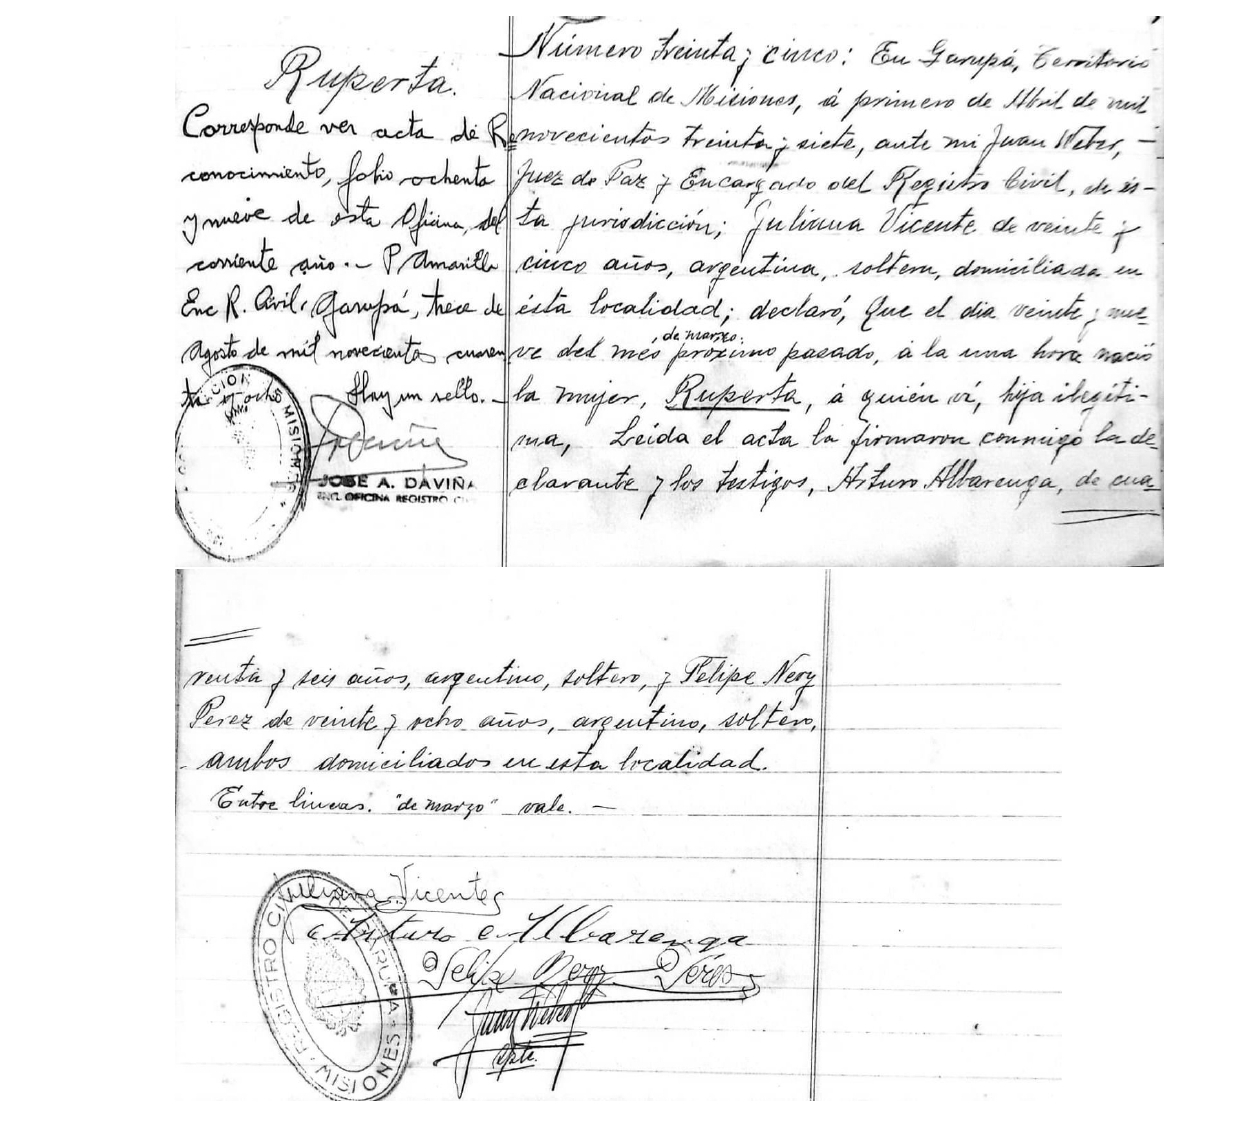 Ruperta.
Corresponde ver acta de Re
conocimiento, folio ochenta
y nueve de esta Oficina, del
corriente año.- P Amarilla
Enc R. Civil, Garupá, trece de
Agosto de mil novecientos cuaren
ta y ocho Hay un sello.-
MISIONES
JOSE A. DAVIÑA
ENC. OFICINA REGISTRO
Número treinta y cinco: En Garupá, Territorio
Nacional de Misiones, á primero de Abril de mil
novecientos treinta y siete, ante mi Juan Weber, -
Juez de Paz y Encargado del Registro Civil, de és-
ta jurisdicción; Juliana Vicente de veinte y
cinco años, argentina, soltera, domiciliada en
ésta localidad; declaró, Que el dia veinte y nue-
de marzo.
ve del més próximo pasado, á la una hora nació
la mujer, Ruperta, á quién ví, hija ilegíti-
ma, Leída el acta la firmaron conmigo la de
clarante y los testigos, Arturo Albarenga, de cua_
renta y seis años, argentino, soltero, y Felipe Nery
Perez de veinte y ocho años, argentino, soltero,
ambos domiciliados en esta localidad.
Entre lineas. "de marzo" vale. -
Juliana Vicentes
Arturo Albarenga
Felipe Nery Péres
Juan Weber
REGISTRO CIVIL DE GARUPA - MISIONES